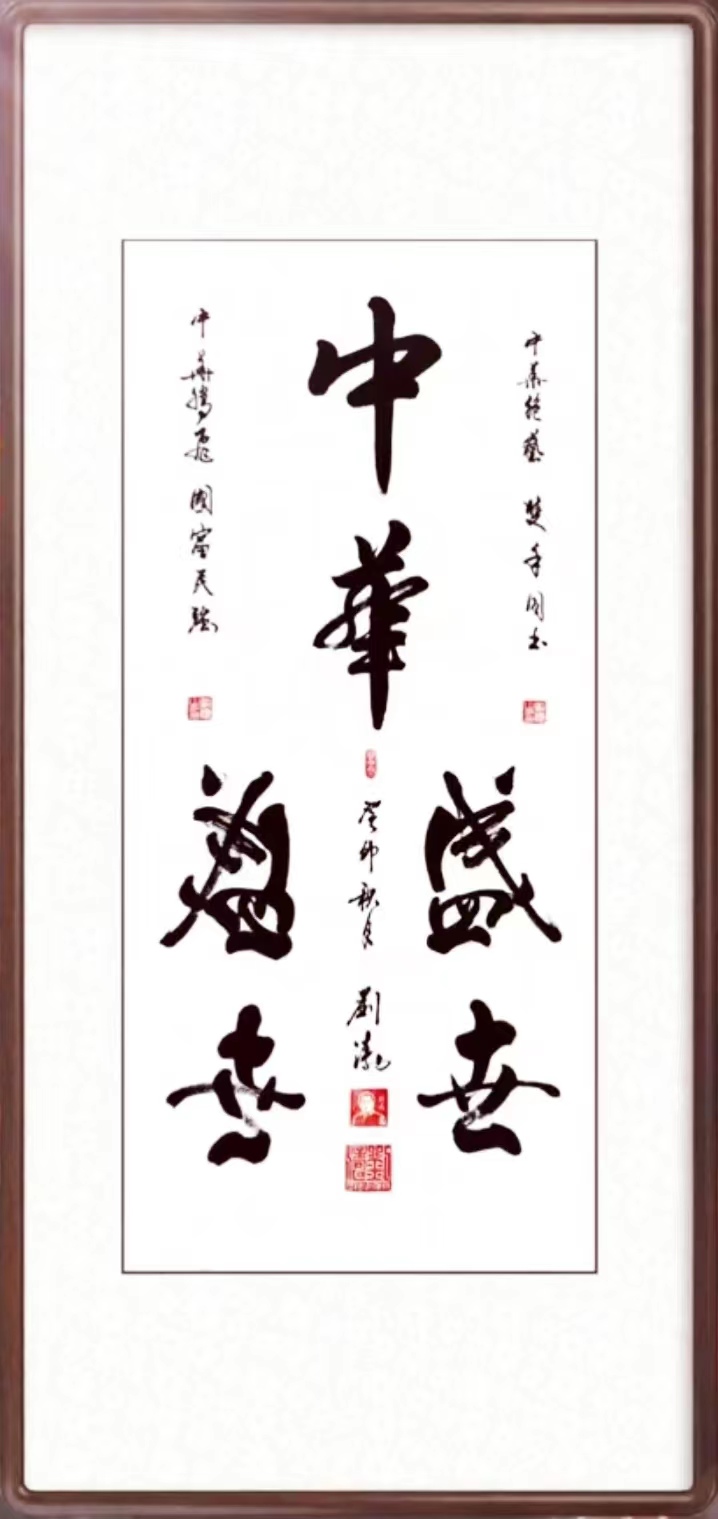 中華
盛世
盛世
中華絕藝 雙手同书
中華騰飛 國富民强
癸卯秋月
劉